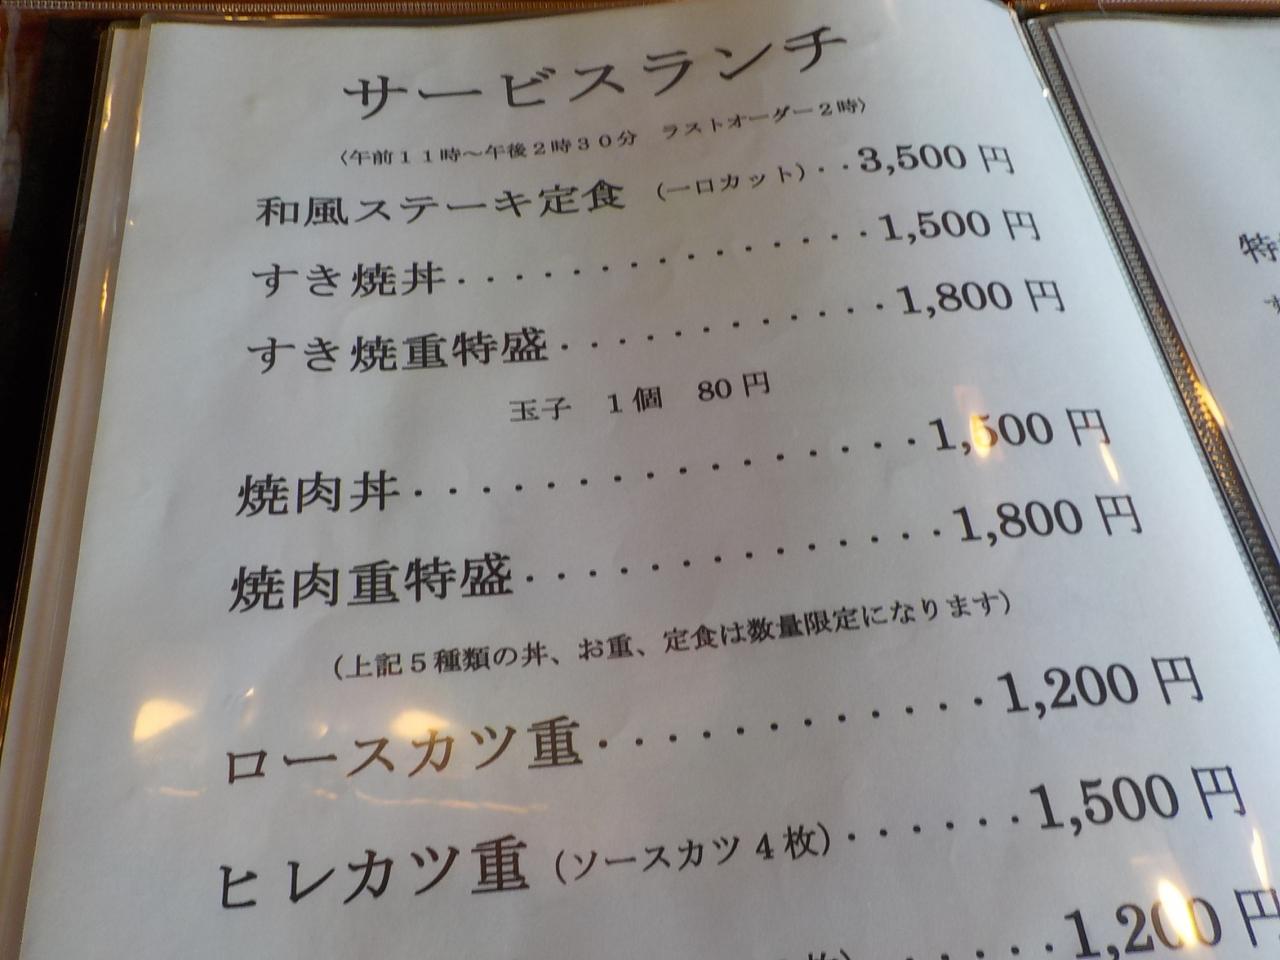 サービスランチ
〈午前１１時～午後２時３０分　ラストオーダー２時〉
和風ステーキ定食　（一口カット）・・3,500 円
すき焼丼・・・・・・・・・・・・・・・1,500 円
すき焼重特盛・・・・・・・・・・・・1,800 円
玉子　１個　80 円
焼肉丼・・・・・・・・・・・・・・・・・1,500 円
焼肉重特盛・・・・・・・・・・・・・・1,800 円
（上記５種類の丼、お重、定食は数量限定になります）
ロースカツ重・・・・・・・・・・・・1,200 円
ヒレカツ重（ソースカツ 4 枚）・・・・・・1,500 円
枚）・・・・・1,200 円
特